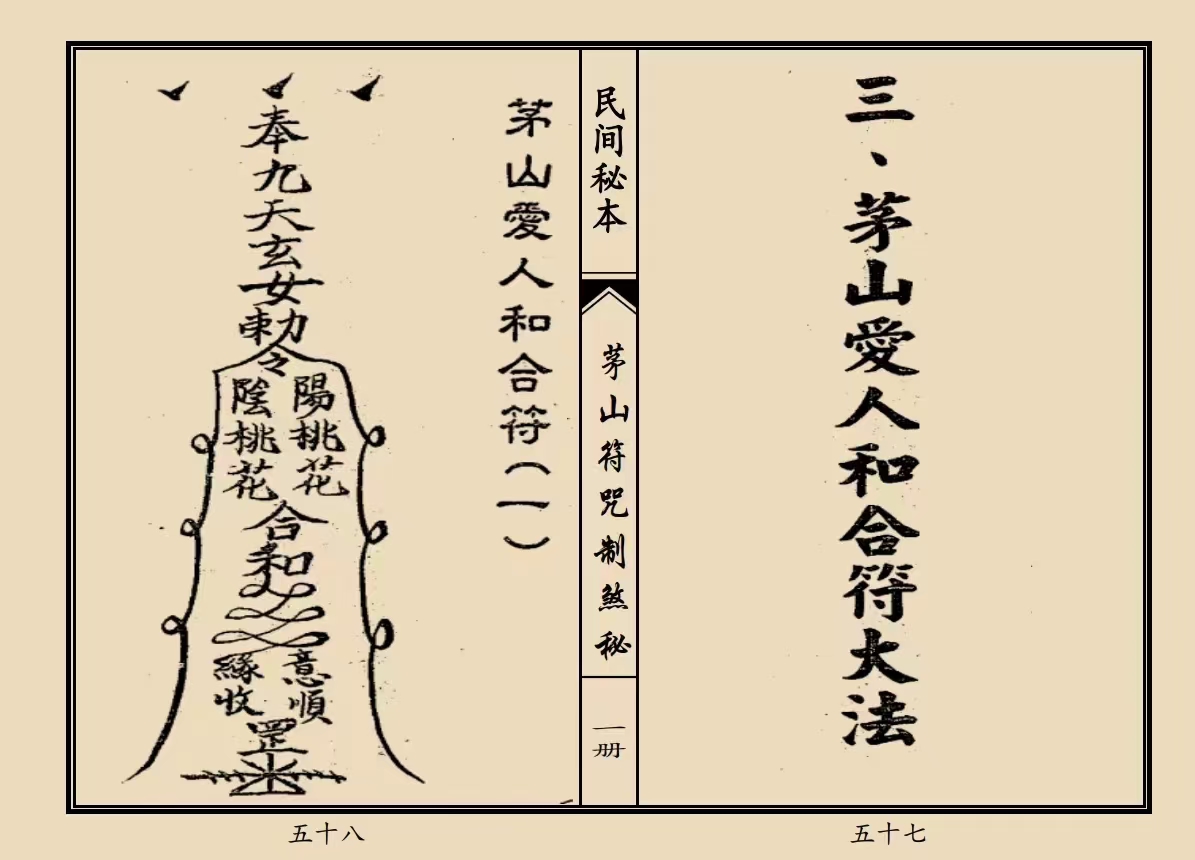 三、茅山愛人和合符大法
五十七
民间秘本
茅山符咒制煞秘
一册
茅山愛人和合符(一)
奉九天玄女勅令
陽桃花
陰桃花
合和
意順
緣收
罡
五十八